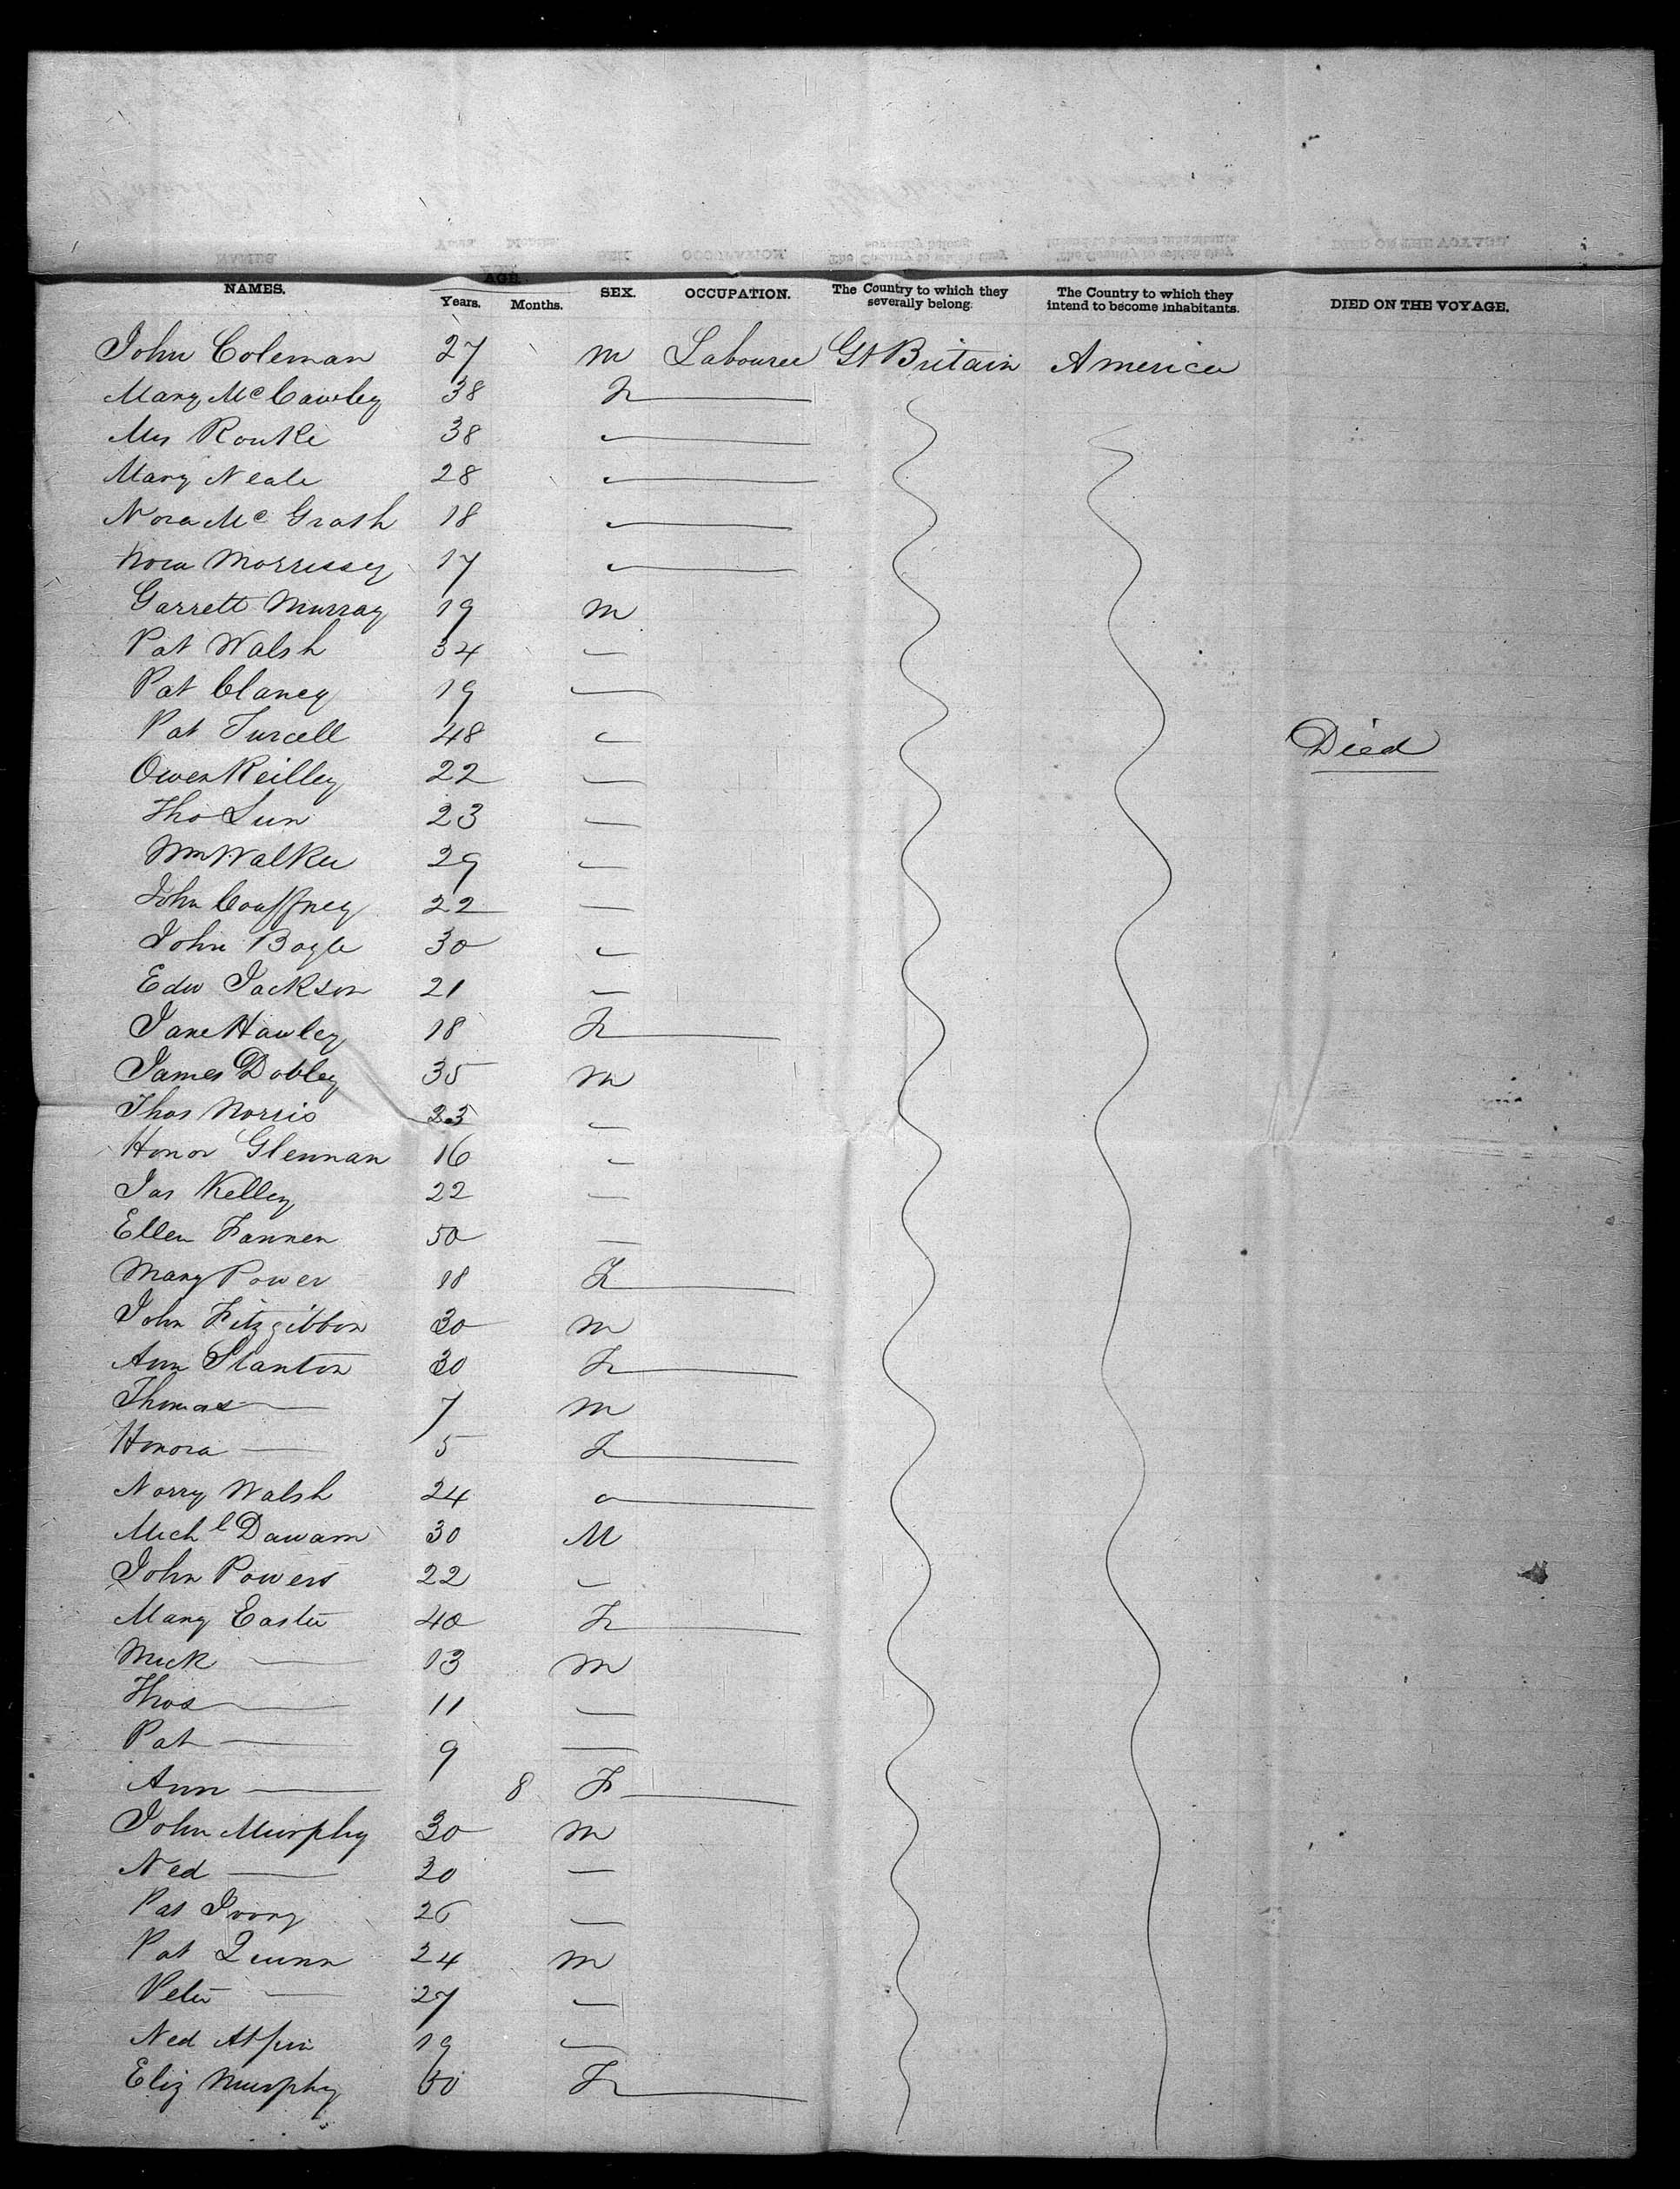 NAMES. AGE. Years. Months. SEX. OCCUPATION. The Country to which they severally belong. The Country to which they intend to become inhabitants. DIED ON THE VOYAGE.
John Coleman 27 m Labourer Gt Britain America
Mary Mc Cawley 38 F
Mrs Rourke 38
Mary Neale 28
Nora Mc Grath 18
Nora Morrissey 17
Garrett Murray 19 m
Pat Walsh 34
Pat Clancy 19
Pat Turcell 48 Died
Owen Reilley 22
Tho Lun 23
Wm Walker 29
John 22
John Bogle 30
Edw Jackson 21
Jane Hawley 18 F
James Dobley 35 m
Thos Norris 23
Honor Glennan 16
Jas Kelley 22
Ellen Fannen 50
Mary Power 18 F
John Fitzgibbon 30 m
Ann Stanton 30 F
Thomas — 7 m
Honora — 5 F
Norry Walsh 24
Michl Dawam 30 M
John Powers 22
Mary Easter 40 F
Mick — 13 m
Thos — 11
Pat — 9
Ann — 8 F
John Murphy 30 m
Ned — 20
Pat Ivory 26
Pat Quinn 24 m
Peter — 27
Ned 19
Eliz Murphy 50 F